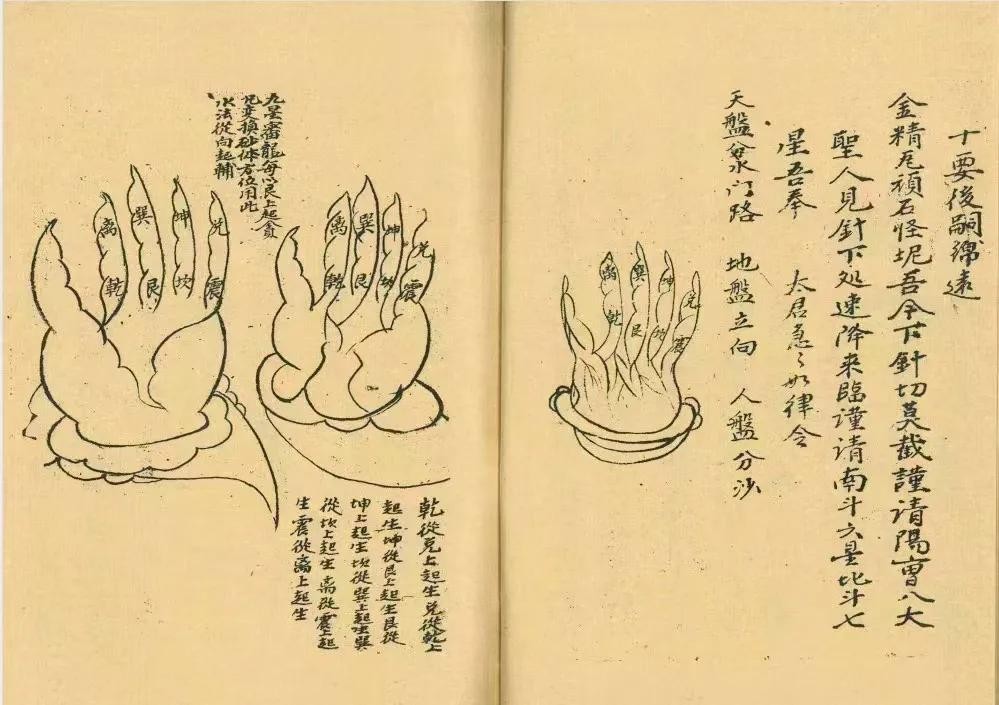 十要後嗣綿遠
金精頑石怪坭吾今下針切莫截謹請陽八大
聖人見針下处速降來臨謹請南斗六星北斗七
星吾奉 太君急々如律令
天盤水门路 地盤立向 人盤分沙
兌震
坤坎
巽艮
離乾
九星審龍每以艮上起貪
凡变換砂体方位用此
水法從向起輔
兌震
坤坎
巽艮
離乾
兌震
坤坎
巽艮
離乾
乾從兌上起生兌從乾上
起生坤從艮上起生艮從
坤上起生坎從巽上起生巽
從坎上起生离從震上起
生震從离上起生